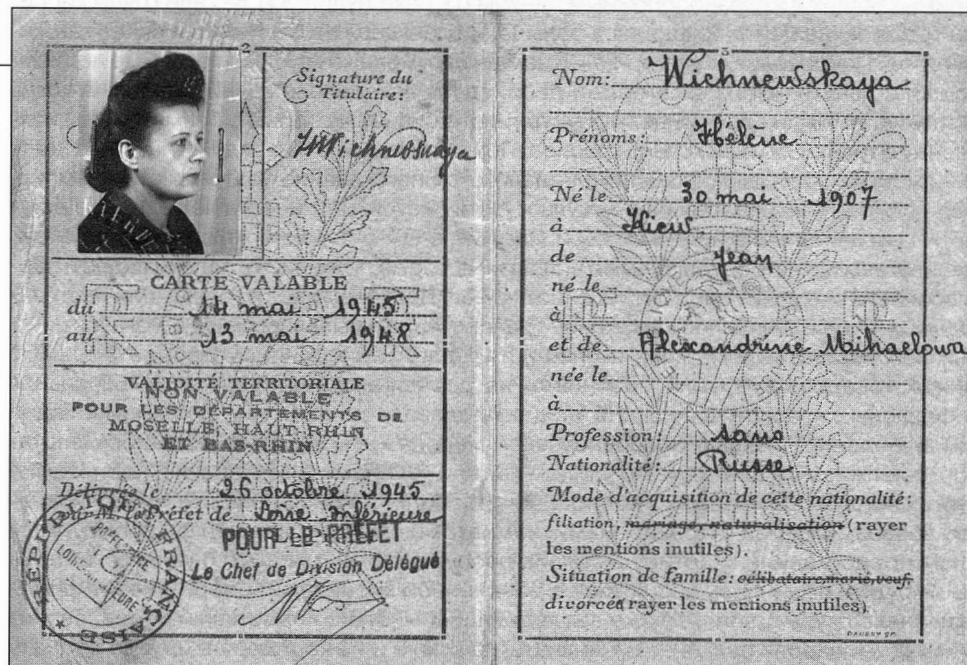 2
Signature du
Titulaire:
HWichnewskaya
CARTE VALABLE
du 14 mai 1945
au 13 mai 1948
VALIDITÉ TERRITORIALE
NON VALABLE
POUR LES DÉPARTEMENTS DE
MOSELLE, HAUT-RHIN
ET BAS-RHIN
Délivrée le 26 octobre 1945
le Préfet de Loire Inférieure
POUR LE PRÉFET
Le Chef de Division Délégué
RÉPUBLIQUE FRANÇAISE
3
Nom: Wichnewskaya
Prénoms: Hélène
Né le 30 mai 1907
à Kiew
de Jean
né le
à
et de Alexandrine Mihaelowa
née le
à
Profession: sans
Nationalité: Russe
Mode d'acquisition de cette nationalité:
filiation, mariage, naturalisation (rayer
les mentions inutiles).
Situation de famille: célibataire, marié, veuf,
divorcée (rayer les mentions inutiles)